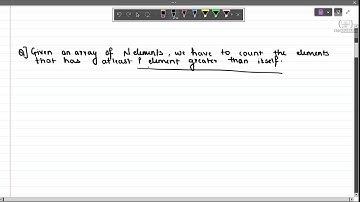 Q] Given an array of N elements, we have to count the elements
that has atleast 1 element greater than itself.